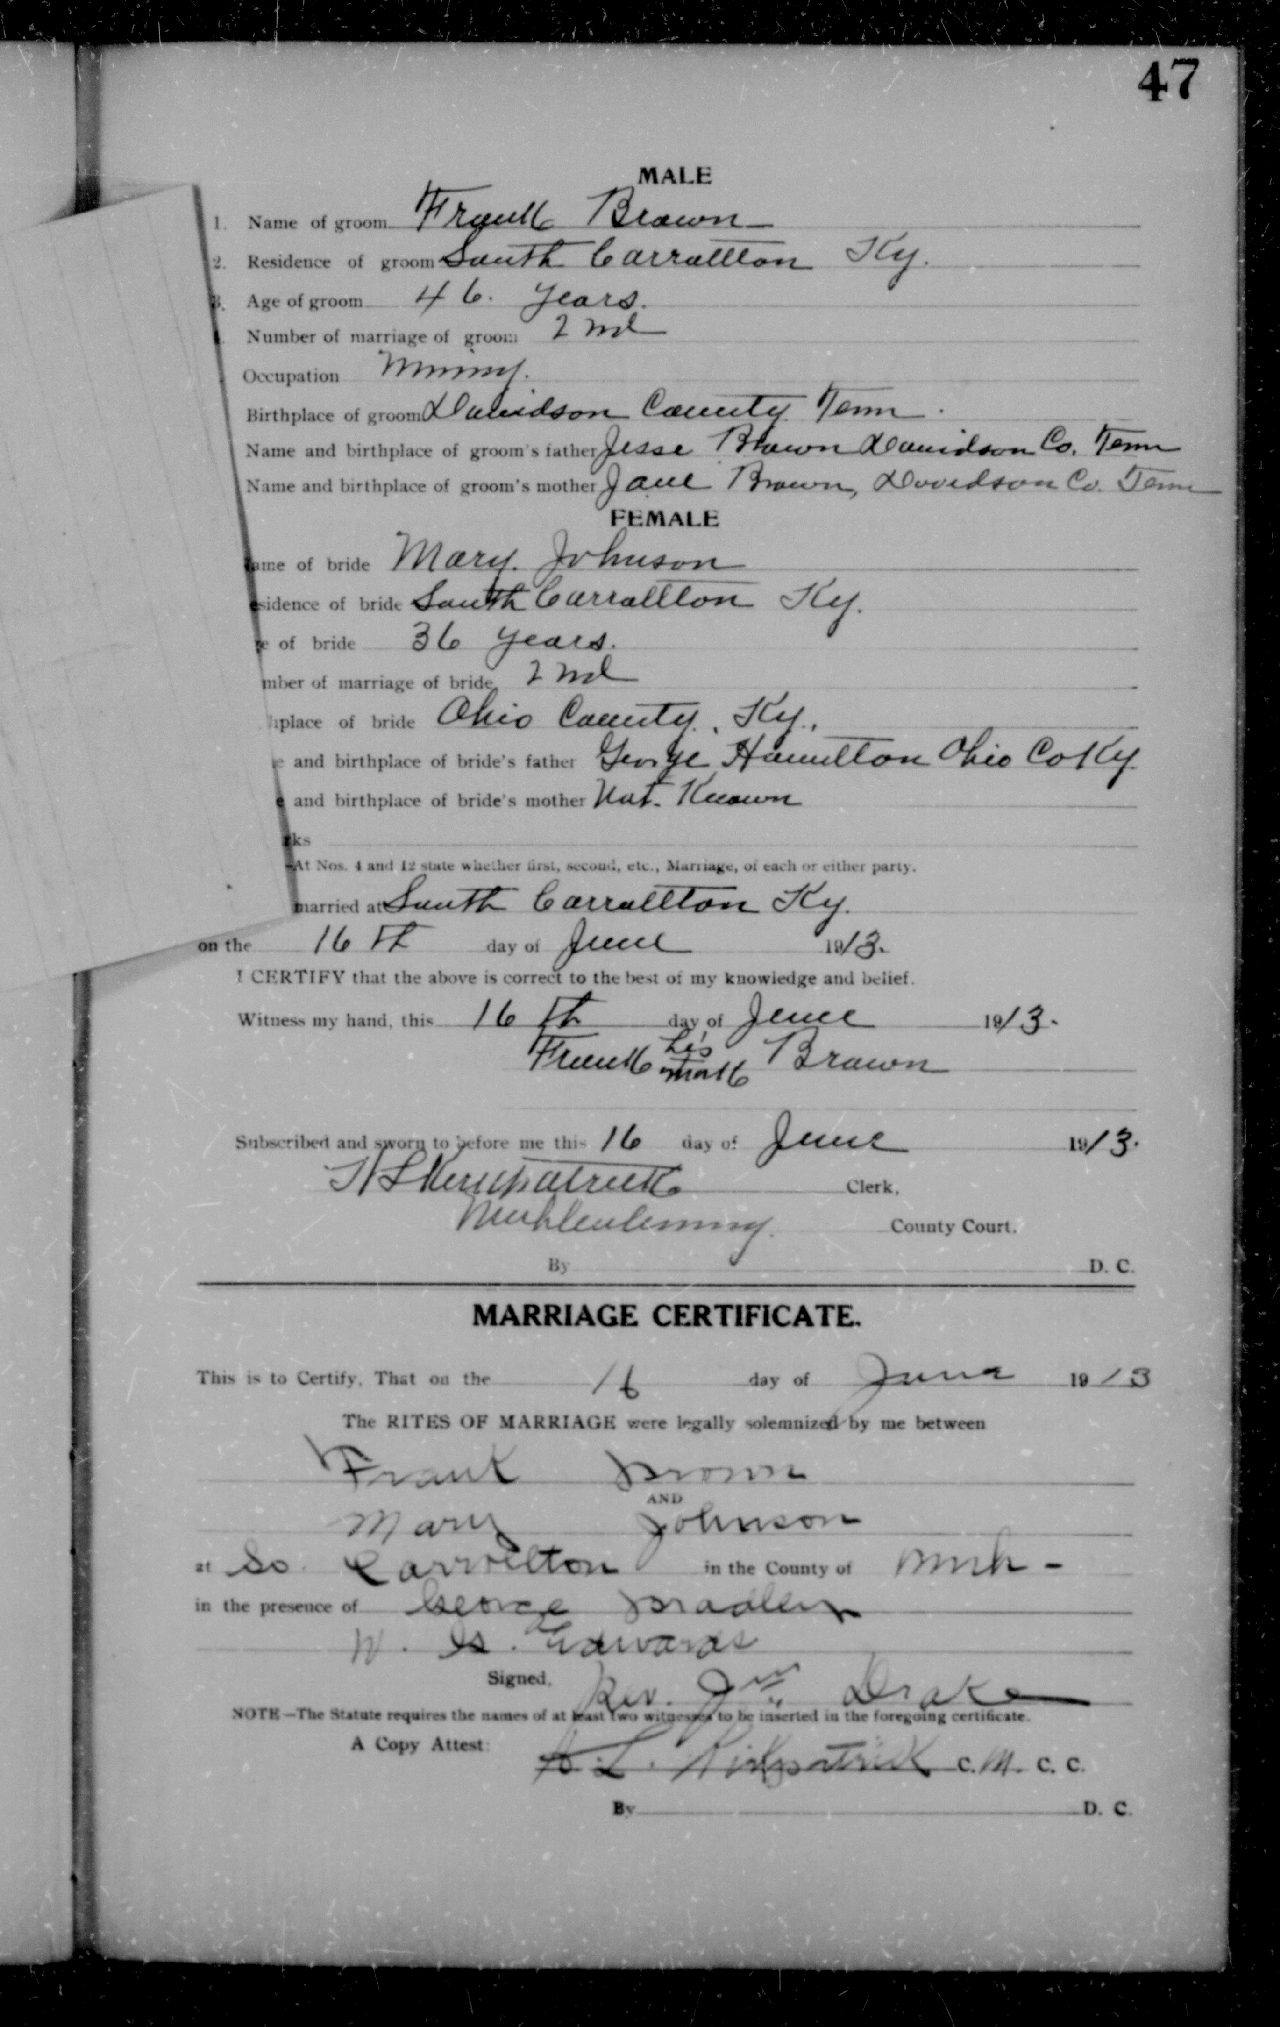 47
MALE
1. Name of groom Frank Brown
2. Residence of groom South Carrollton Ky.
3. Age of groom 46. years.
Number of marriage of groom 2nd
Occupation Mining.
Birthplace of groom Davidson County Tenn.
Name and birthplace of groom's father Jesse Brown Davidson Co. Tenn
Name and birthplace of groom's mother Jane Brown, Davidson Co. Tenn
FEMALE
ame of bride Mary Johnson
esidence of bride South Carrollton Ky.
e of bride 36 years.
mber of marriage of bride 2nd
hplace of bride Ohio County, Ky.
e and birthplace of bride's father George Hamilton Ohio Co Ky
e and birthplace of bride's mother Not Known
rks
At Nos. 4 and 12 state whether first, second, etc., Marriage, of each or either party.
married at South Carrollton Ky.
on the 16th day of June 1913.
I CERTIFY that the above is correct to the best of my knowledge and belief.
Witness my hand, this 16th day of June 1913.
his
Frank Brown
mark
Subscribed and sworn to before me this 16 day of June 1913.
Kirkpatrick Clerk,
Muhlenberg County Court.
By D. C.
MARRIAGE CERTIFICATE.
This is to Certify, That on the 16 day of June 1913
The RITES OF MARRIAGE were legally solemnized by me between
Frank Brown
AND
Mary Johnson
at So. Carrollton in the County of Muh -
in the presence of George Bradley
W. G. Edwards
Signed, Rev. Jno. Drake
NOTE—The Statute requires the names of at least two witnesses to be inserted in the foregoing certificate.
A Copy Attest: L. Kirkpatrick C. M. C. C.
By D. C.